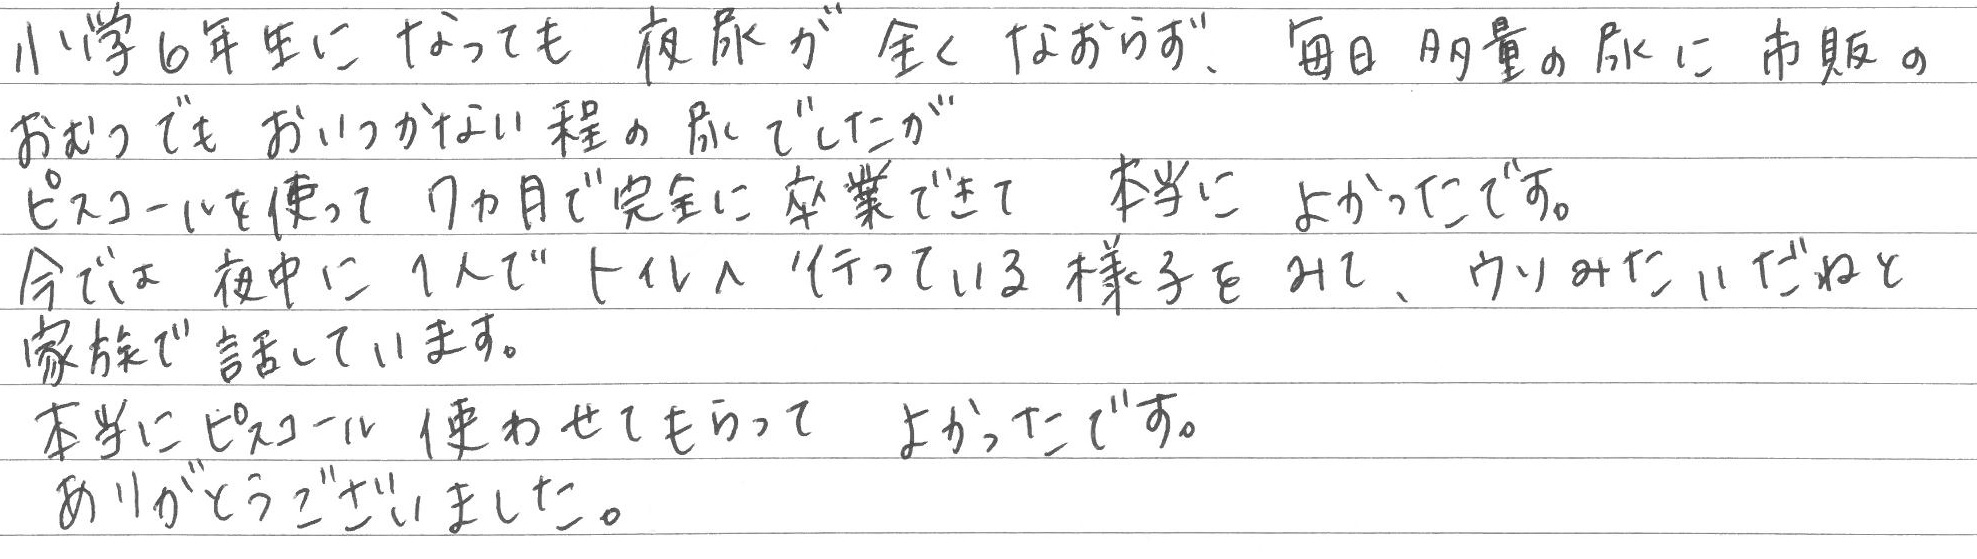 小学6年生になっても 夜尿が 全く なおらず、 毎日 多量の 尿に 市販の
おむつでも おいつかない 程の 尿でしたが
ピスコールを使って 7ヵ月で完全に 卒業できて 本当に よかったです。
今では 夜中に 1人で トイレへ 行っている 様子を みて、 ウソみたいだねと
家族で 話しています。
本当にピスコール 使わせてもらって よかったです。
ありがとうございました。